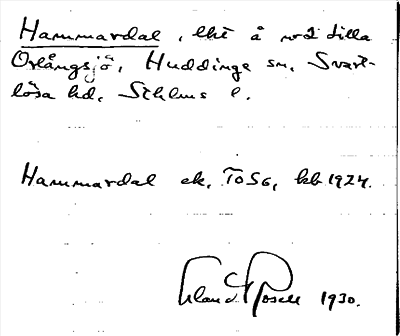 Hammardal, lht å nr 1 Lilla
Orlångsjö, Huddinge sn, Svart-
lösa hd, Sthlms l.
Hammardal ek. T056, kb 1924.
Erland Rosell 1930.